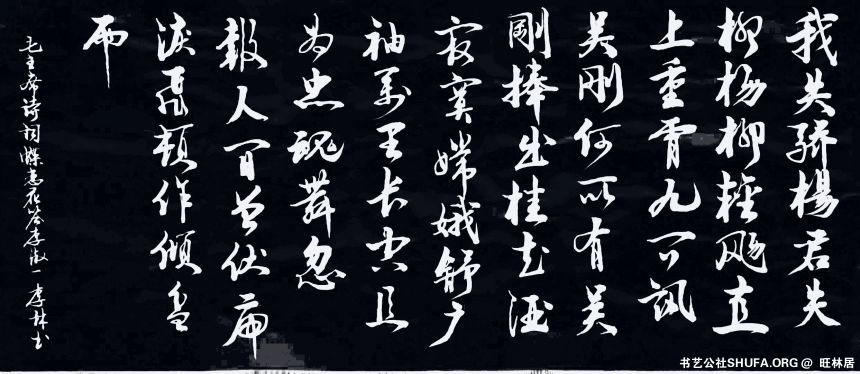 我失骄楊君失
柳杨柳輕飏直
上重霄九问訊
吴刚何所有吴
剛捧出桂花酒
寂寞嫦娥舒广
袖万里长空且
为忠魂舞忽
報人间曾伏虎
淚飛頓作傾盆
雨
毛主席诗词蝶恋花答李淑一 李林书
书艺公社SHUFA.ORG @ 旺林居